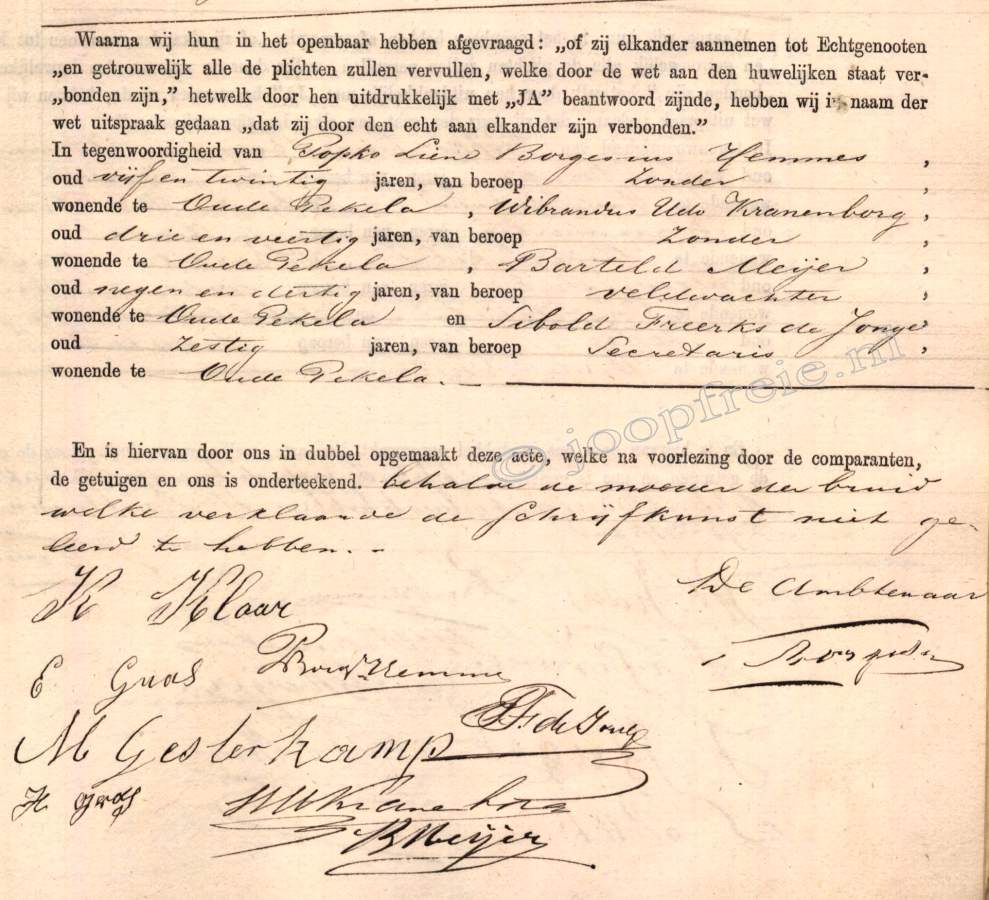 Waarna wij hun in het openbaar hebben afgevraagd: „of zij elkander aannemen tot Echtgenooten
„en getrouwelijk alle de plichten zullen vervullen, welke door de wet aan den huwelijken staat ver-
„bonden zijn,” hetwelk door hen uitdrukkelijk met „JA” beantwoord zijnde, hebben wij in naam der
wet uitspraak gedaan „dat zij door den echt aan elkander zijn verbonden.”
In tegenwoordigheid van Popko Liene Borgesius Hemmes,
oud vijf en twintig jaren, van beroep Zonder,
wonende te Oude Pekela, Wibrandus Udo Kranenborg,
oud drie en veertig jaren, van beroep Zonder,
wonende te Oude Pekela, Barteld Meijer,
oud negen en dertig jaren, van beroep veldwachter,
wonende te Oude Pekela en Sibold Freerks de Jonge
oud zestig jaren, van beroep Secretaris,
wonende te Oude Pekela.
© joopfreie.nl
En is hiervan door ons in dubbel opgemaakt deze acte, welke na voorlezing door de comparanten,
de getuigen en ons is onderteekend. behalve de moeder der bruid
welke verklaarde de schrijfkunst niet ge-
leerd te hebben.
K Klaar
De Ambtenaar
E Graas
PBorg Hemmes
M Gesterkamp
SF de Jonge
H
WUKranenborg
BMeijer